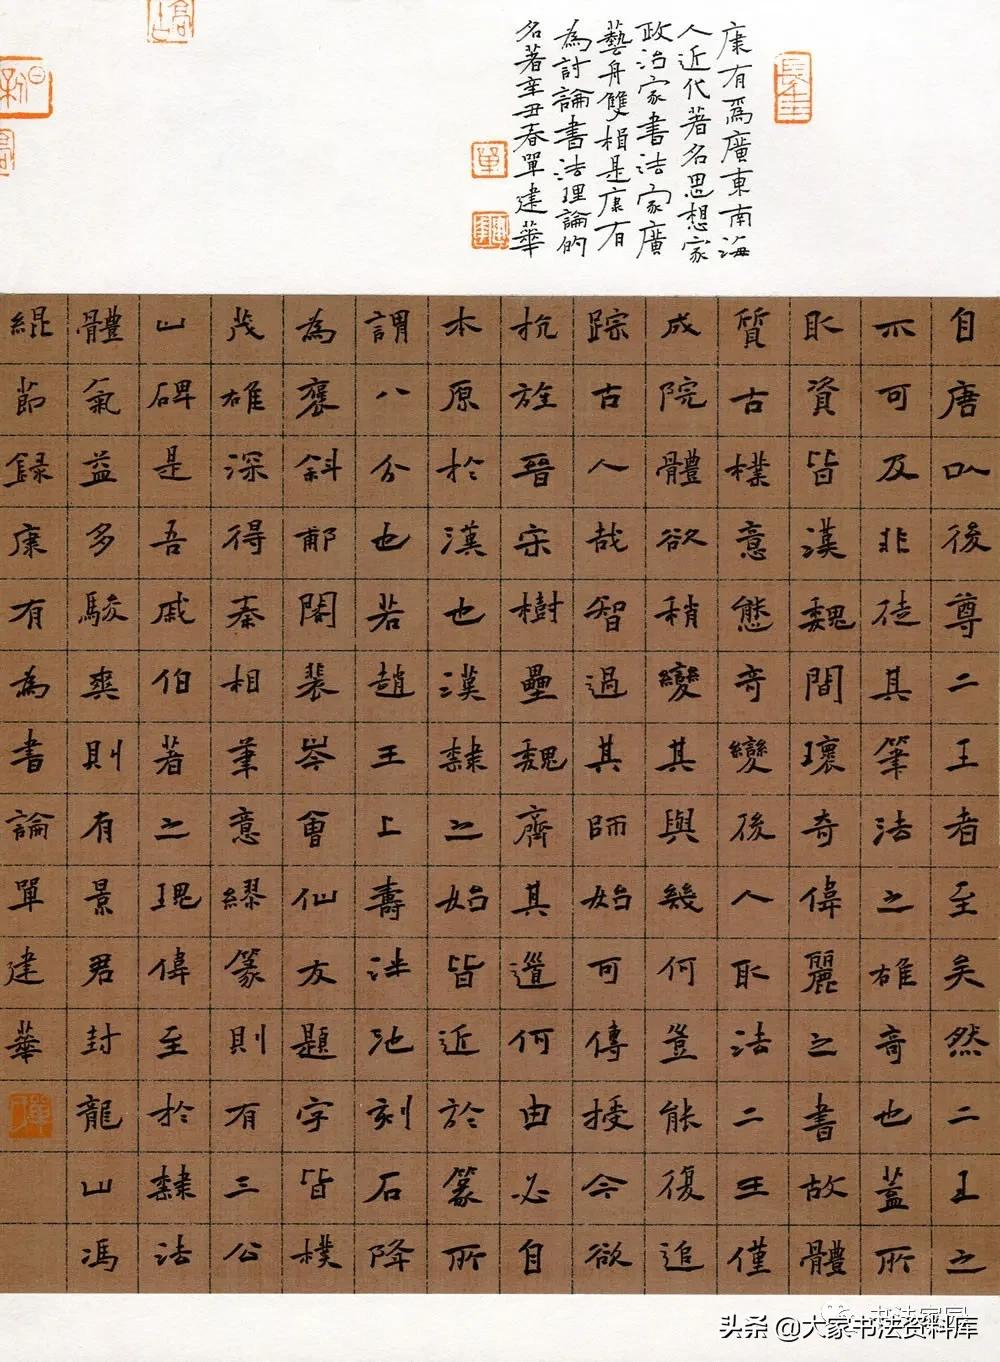 康有爲廣東南海
人近代著名思想家
政治家書法家廣
藝舟雙楫是康有
為討論書法理論的
名著辛丑春單建華
自唐以後尊二王者至矣然二王之
不可及非徒其筆法之雄奇也蓋所
取資皆漢魏間瓌奇偉麗之書故體
質古樸意態奇變後人取法二王僅
成院體欲稍變其與幾何豈能復追
踪古人哉智過其師始可傳授今欲
抗旌晉宋樹壘魏齊其道何由必自
本原於漢也漢隸之始皆近於篆所
謂八分也若趙王上壽泮池刻石降
為褒斜鄐閣裴岑會仙友題字皆樸
茂雄深得秦相筆意繆篆則有三公
山碑是吾戚伯著之瑰偉至於隸法
體氣益多駿爽則有景君封龍山馮
緄節録康有為書論單建華
長生
單
建華
單
头条 @大家书法资料库
书法家园